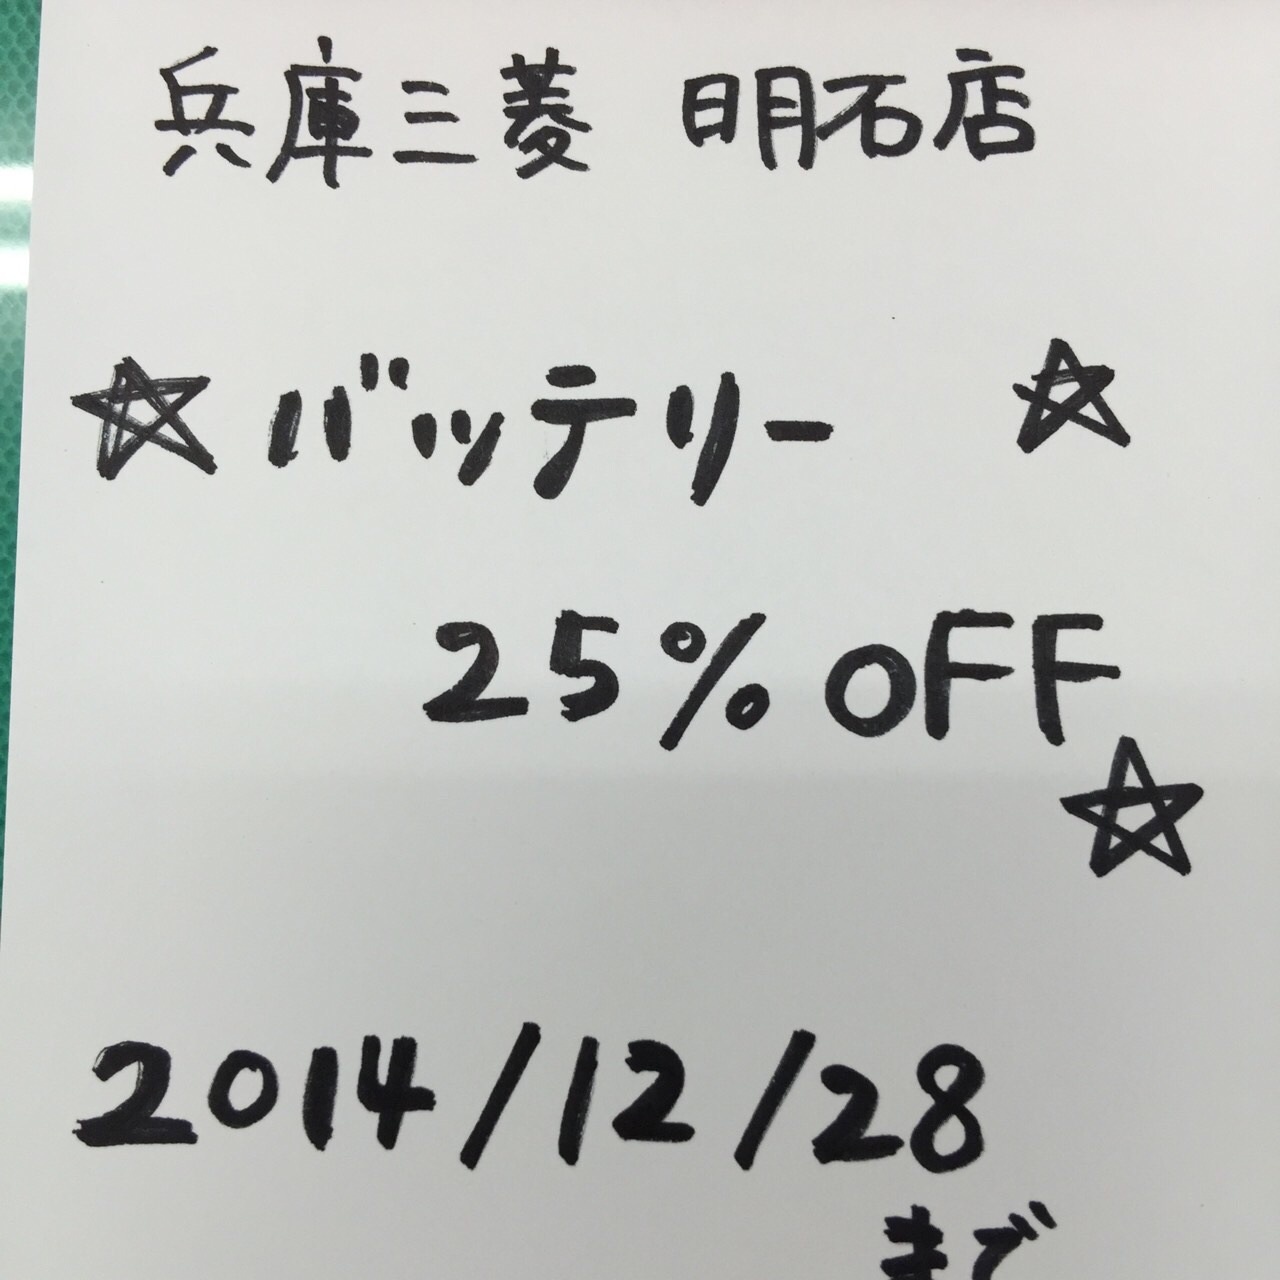 兵庫三菱 明石店
☆バッテリー ☆
25% OFF
☆
2014/12/28
まで